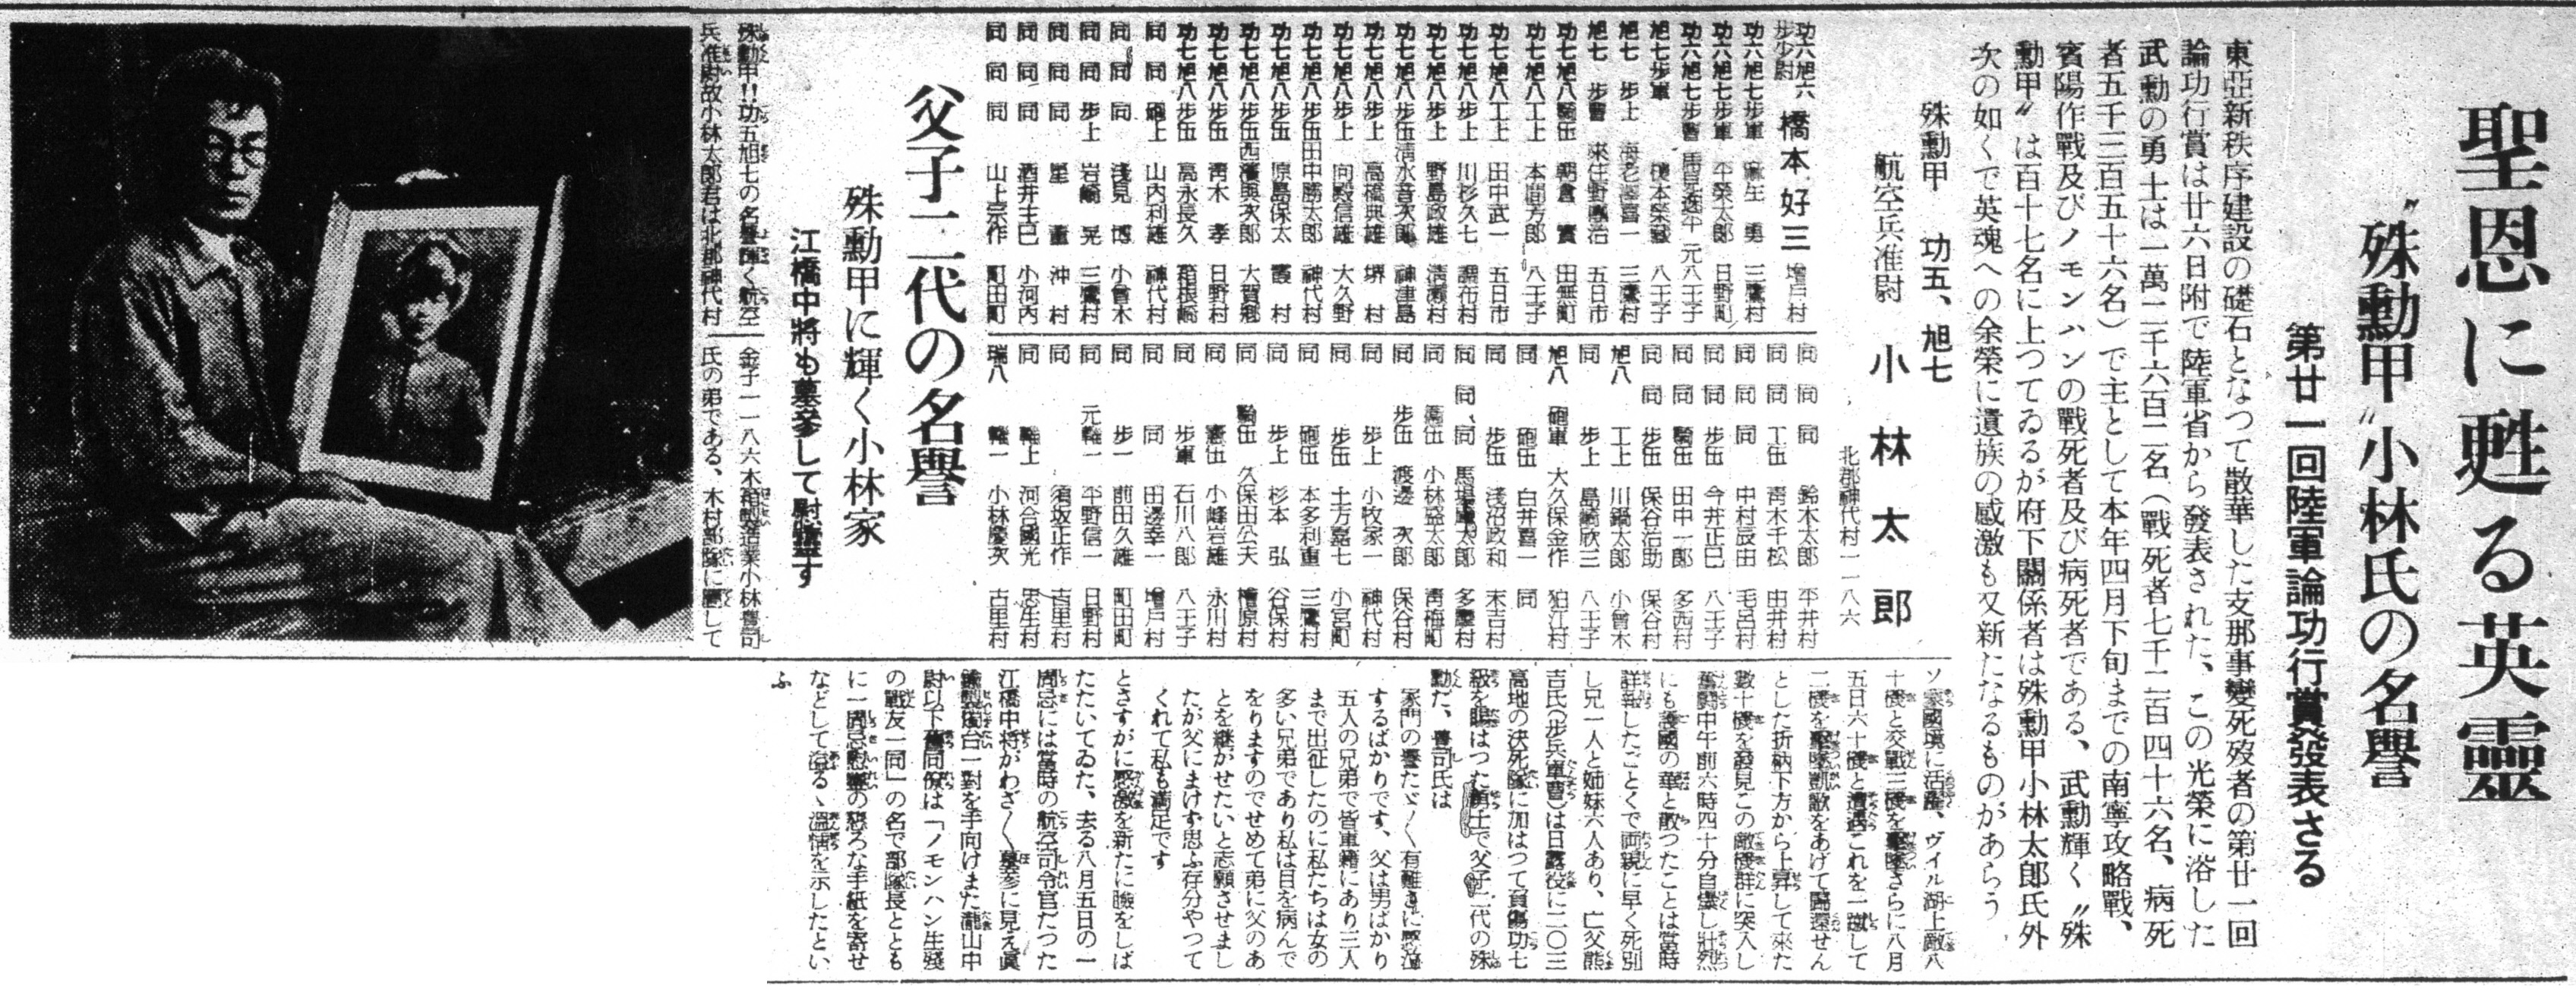 聖恩に甦る英靈
〝殊勳甲〟小林氏の名譽
第廿一回陸軍論功行賞發表さる
東亞新秩序建設の礎石となつて散華した支那事變死歿者の第廿一回
論功行賞は廿六日附で陸軍省から發表された、この光榮に浴した
武勳の勇士は一萬二千六百二名（戰死者七千二百四十六名、病死
者五千三百五十六名）で主として本年四月下旬までの南寧攻略戰、
賓陽作戰及びノモンハンの戰死者及び病死者である、武勳輝く〝殊
勳甲〟は百十七名に上つてゐるが府下關係者は殊勳甲小林太郎氏外
次の如くで英魂への余榮に遺族の感激も又新たなるものがあらう
殊勳甲　功五、旭七
航空兵准尉　小林太郎
北郡神代村一一八六
功六旭六
步少尉　橋本好三　增戶村
功六旭七步軍　麻生　勇　三鷹村
功六旭七步軍　平榮太郎　日野町
功六旭七步曹　元八王子
旭七步軍　榎本榮藏　八王子
旭七　步上　海老澤喜一　三鷹村
旭七　步曹　來住野團治　五日市
功七旭八騎伍　朝倉　實　田無町
功七旭八工上　本間方郎　八王子
功七旭八工上　田中武一　五日市
功七旭八步上　川杉久七　調布村
功七旭八步上　野島政雄　清瀨村
功七旭八步伍　清水音次郎　神津島
功七旭八步上　高橋典雄　堺　村
功七旭八步上　向殿信雄　大久野
功七旭八步伍　田中勝太郎　神代村
功七旭八步伍　原島保太　霞　村
功七旭八步伍　西濱與次郎　大賀鄉
功七旭八步伍　靑木　孝　日野村
功七旭八步伍　高永長久　箱根崎
同　同　砲上　山內利雄　神代村
同　同　同　淺見　博　小曾木
同　同　步上　岩崎　晃　三鷹村
同　同　同　星　重　沖　村
同　同　同　酒井主巳　小河內
同　同　同　山上宗作　町田町
同　同　同　鈴木太郎　平井村
同　同　工伍　靑木千松　由井村
同　同　同　中村辰由　毛呂村
同　同　步伍　今井正巳　八王子
同　同　騎伍　田中一郎　多西村
同　同　步伍　保谷浩助　保谷村
旭八　工上　川鍋太郎　小曾木
同　步上　島崎欣三　八王子
旭八　砲軍　大久保金作　狛江村
同　砲伍　白井喜一　同
同　步伍　淺沼政和　末吉村
同　同　同　多磨村
同　小林盛太郎　靑梅町
同　步伍　渡邊　次郎　保谷村
同　步上　小牧家一　神代村
同　步伍　土方嘉七　小宮町
同　砲伍　本多利重　三鷹村
同　步上　杉本　弘　谷保村
同　輪伍　久保田公夫　檜原村
同　憲伍　小峰岩雄　氷川村
同　步軍　石川八郎　八王子
同　同　田邊幸一　增戶村
同　步一　前田久雄　町田町
同　元輜一　平野信一　日野村
同　同　須坂正作　古里村
同　輪上　河合國光　恩生村
瑞八　輪一　小林慶次　古里村
父子二代の名譽
殊勳甲に輝く小林家
江橋中將も墓參して慰靈す
殊勳甲!!功五旭七の名譽輝く航空
兵准尉故小林太郎君は北郡神代村
金子一一八六木箱製造業小林晋司
氏の弟である、木村部隊に屬して
ソ蒙國境に活躍、ヴイル湖上敵八
十機と交戰三機を擊墜さらに八月
五日六十機と遭遇これを一蹴して
二機を擊墜凱歌をあげて歸還せん
とした折柄下方から上昇して來た
數十機を發見この敵機群に突入し
奮鬪中午前六時四十分自爆し壯烈
にも護國の華と散つたことは當時
詳報したごとくで両親に早く死別
し兄一人と姉妹六人あり、亡父熊
吉氏（步兵軍曹）は日露役に二〇三
高地の決死隊に加はつて負傷功七
級を賜はつた勇士で父子二代の殊
勳だ、晋司氏は
家門の譽たゞ〱有難さに感泣
するばかりです、父は男ばかり
五人の兄弟で皆軍籍にあり三人
まで出征したのに私たちは女の
多い兄弟であり私は目を病んで
をりますのでせめて弟に父のあ
とを継がせたいと志願させまし
たが父にまけず思ふ存分やつて
くれて私も滿足です
とさすがに感激を新たに瞼をしば
たたいてゐた、去る八月五日の一
周忌には當時の航空司令官だつた
江橋中將がわざ〱墓參に見え眞
鍮製燭台一對を手向けまた瀧山中
尉以下舊同僚は「ノモンハン生殘
の戰友一同」の名で部隊長ととも
に一周忌慰靈の懇ろな手紙を寄せ
などして溢るゝ溫情を示したとい
ふ